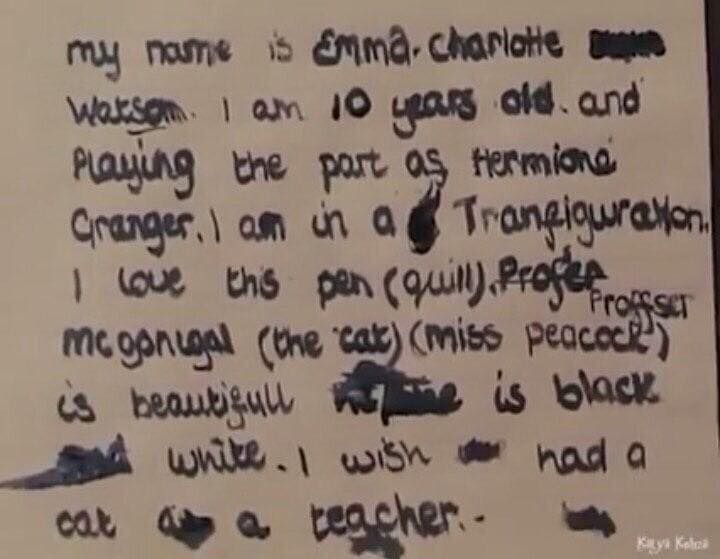 my name is Emma. Charlotte
Watsom. I am 10 years old. and
Playing the part as Hermione
Granger. I am in a Tranfiguration.
I love this pen (quill). Profer
Proffser
mcgonigal (the cat) (miss peacock)
is beautifull is black
white. I wish had a
cat a teacher.-
Katya Kolna